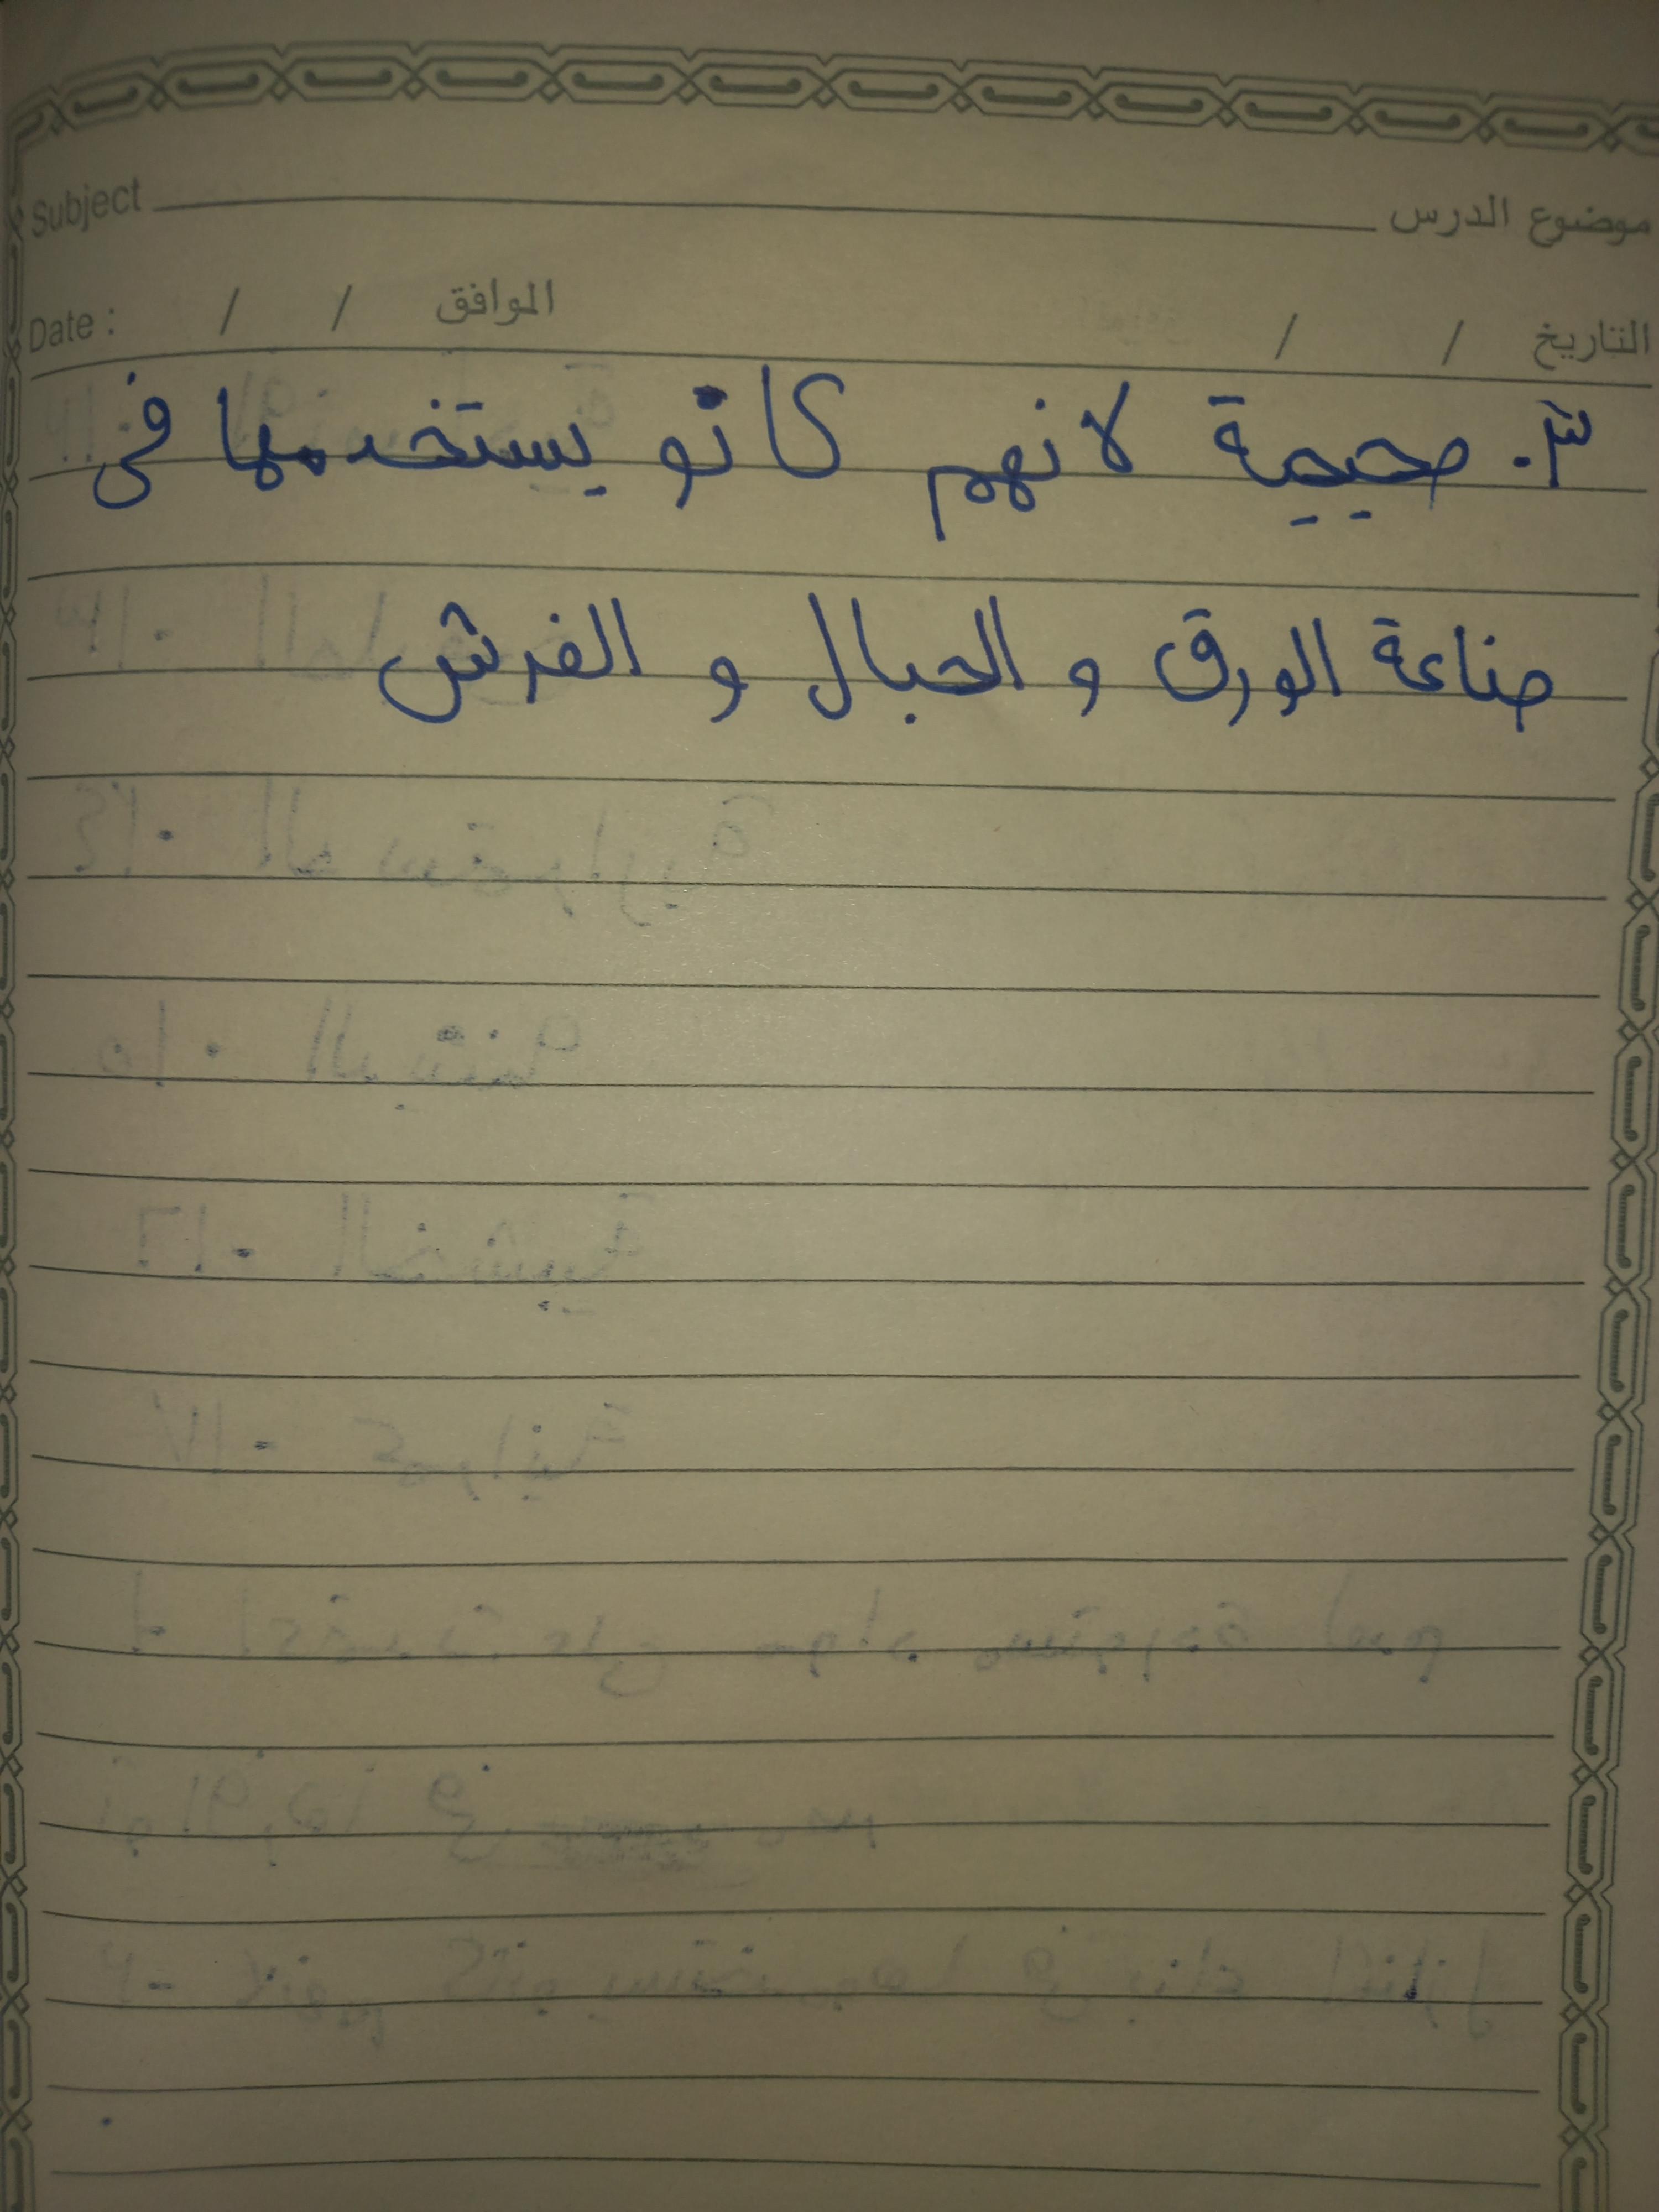 موضوع الدرس Subject
التاريخ / / الموافق / / Date :
٣. صحيحة لانهم كانو يستخدمها فى
صناعة الورق و الحبال و الفرش